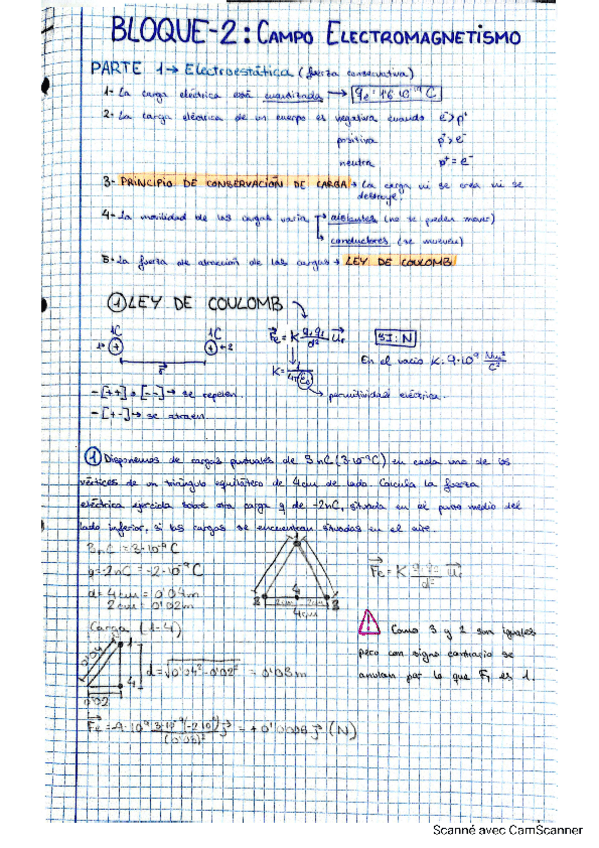 BLOQUE-2: CAMPO ELECTROMAGNETISMO
PARTE 1→ Electroestática (fuerza conservativa)
1- La carga eléctrica está cuantizada → qe⁻ 1'6·10⁻¹⁹ C
2- La carga eléctrica de un cuerpo es negativa cuando e⁻>p⁺
positiva p⁺>e⁻
neutra p⁺=e⁻
3- PRINCIPIO DE CONSERVACIÓN DE CARGA → La carga ni se crea ni se
destruye.
4- La movilidad de las cargas varía → aislantes (no se pueden mover)
→ conductores (se mueven)
5- La fuerza de atracción de las cargas → LEY DE COULOMB
① LEY DE COULOMB
1C 1C
Fe = K q₁·q₂/d² ur SI: N
En el vacío K: 9·10⁹ Nm²/C²
K = 1/4πε → permitividad eléctrica.
-[++] o [--] → se repelen.
-[+-] → se atraen.
① Disponemos de cargas puntuales de 3nC (3·10⁻⁹C) en cada uno de los
vértices de un triángulo equilátero de 4cm de lado. Calcula la fuerza
eléctrica ejercida sobre otra carga q de -2nC, situada en el punto medio del
lado inferior, si las cargas se encuentran situadas en el aire.
3nC = 3·10⁻⁹ C
q=-2nC = -2·10⁻⁹ C
d=4cm = 0'04m
2cm = 0'02m
1
3 4 2
2cm 2cm
4cm
Fe = K q₁·q₂/d² ur
Carga (1-4)
0'04
1
4
0'02
d=√0'04²-0'02² = 0'03m
Como 3 y 2 son iguales
pero con signo contrario se
anulan por lo que FT es 1.
Fe=-9·10⁹ 3·10⁻⁹(-2·10⁻⁹)/(0'03)² j = +0'00006 j (N)
Scanné avec CamScanner